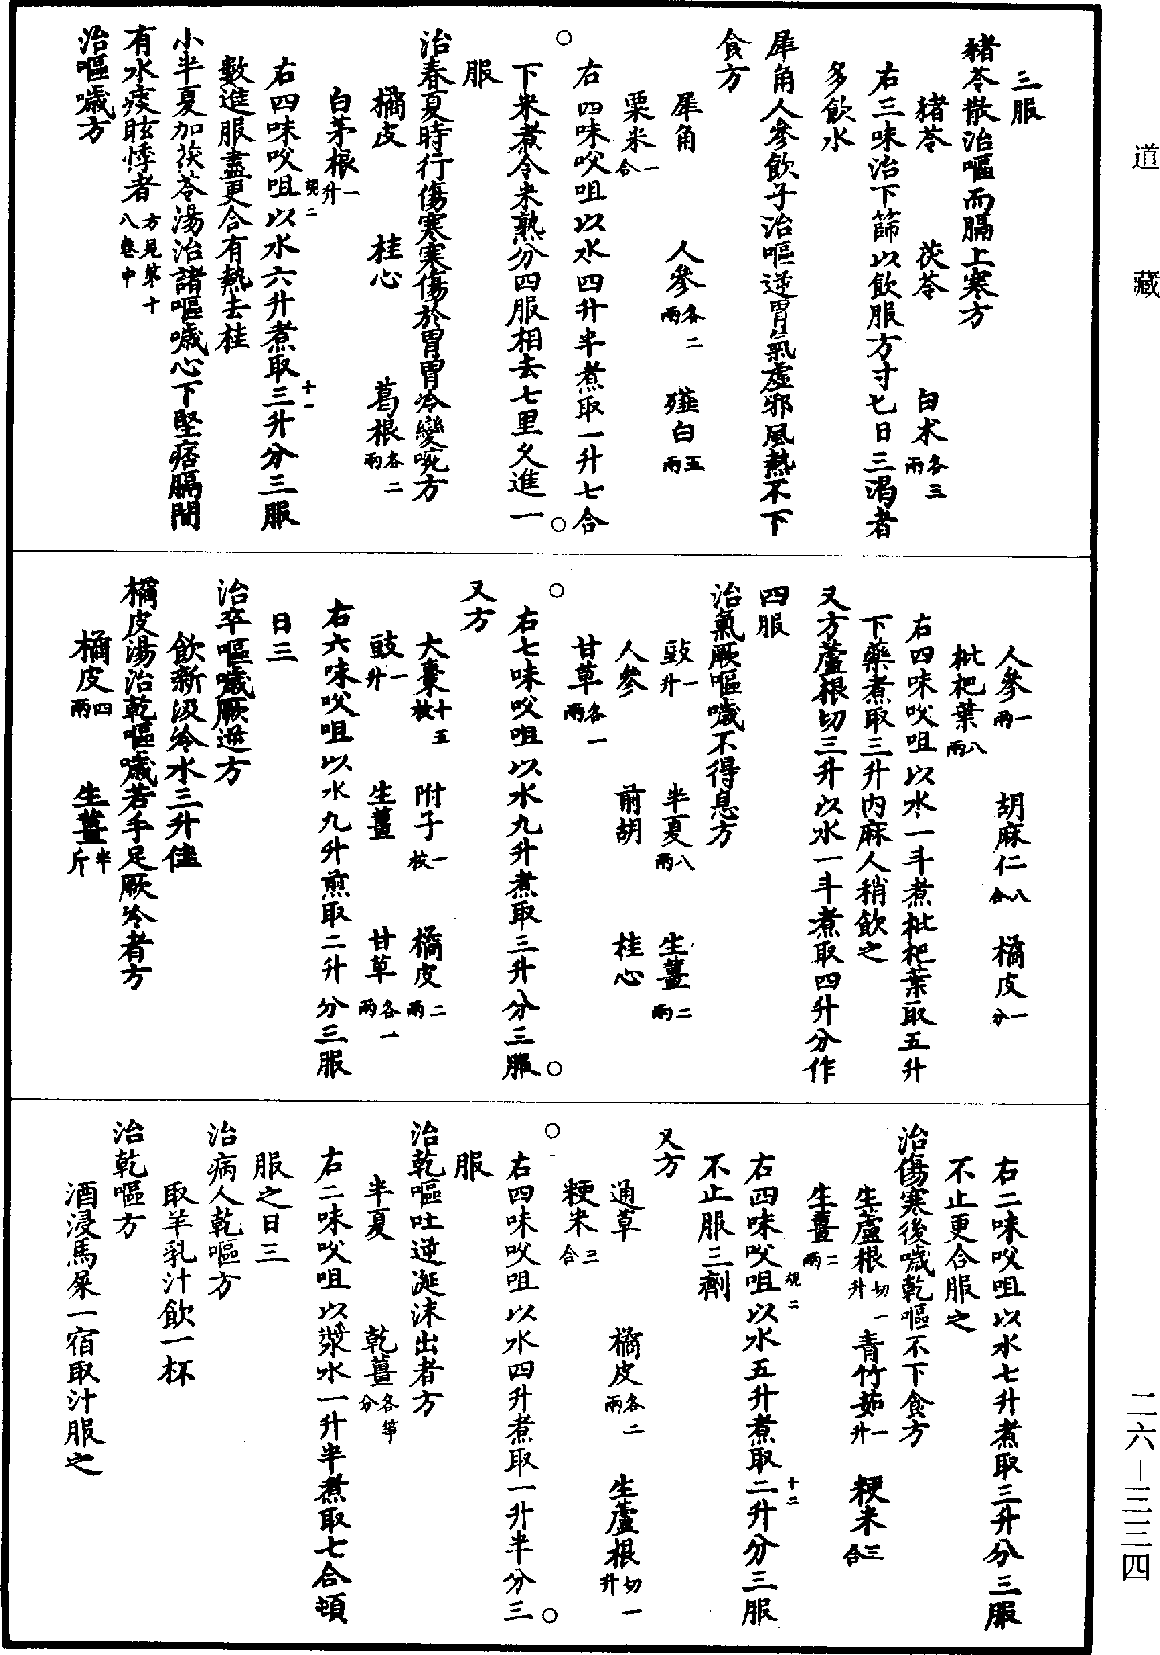 道藏
三服
豬苓散治嘔而膈上寒方
豬苓 茯苓 白术各三兩
右三味治下篩以飲服方寸匕日三渴者
多飲水
犀角人參飲子治嘔逆胃氣虛邪風熱不下
食方
犀角 人參各二兩 薤白五兩
粟米一合
右四味㕮咀以水四升半煮取一升七合
下米煮令米熟分四服相去七里久進一
服
治春夏時行傷寒寒傷於胃胃冷變啘方
橘皮 桂心 葛根各二兩
白茅根一升
右四味㕮咀以水六升煮取三升分三服
數進服盡更合有熱去桂
覩二 十一
小半夏加茯苓湯治諸嘔噦心下堅痞膈間
有水痰眩悸者方見第十八卷中
治嘔噦方
人參一兩 胡麻仁八合 橘皮一分
枇杷葉八兩
右四味㕮咀以水一斗煮枇杷葉取五升
下藥煮取三升內麻人稍飲之
又方蘆根切三升以水一斗煮取四升分作
四服
治氣厥嘔噦不得息方
豉一升 半夏八兩 生薑二兩
人參 前胡 桂心
甘草各一兩
右七味㕮咀以水九升煮取三升分三服
又方
大棗十五枚 附子一枚 橘皮二兩
豉一升 生薑 甘草各一兩
右六味㕮咀以水九升煎取二升分三服
日三
治卒嘔噦厥逆方
飲新汲冷水三升佳
橘皮湯治乾嘔噦若手足厥冷者方
橘皮四兩 生薑半斤
右二味㕮咀以水七升煮取三升分三服
不止更合服之
治傷寒後噦乾嘔不下食方
生蘆根切一升 青竹茹一升 粳米三合
生薑二兩
右四味㕮咀以水五升煮取二升分三服
不止服三劑
覩二 十二
又方
通草 橘皮各二兩 生蘆根切一升
粳米三合
右四味㕮咀以水四升煮取一升半分三
服
治乾嘔吐逆涎沫出者方
半夏 乾薑各等分
右二味㕮咀以漿水一升半煮取七合頓
服之日三
治病人乾嘔方
取羊乳汁飲一杯
治乾嘔方
酒浸馬屎一宿取汁服之
二六—三三四